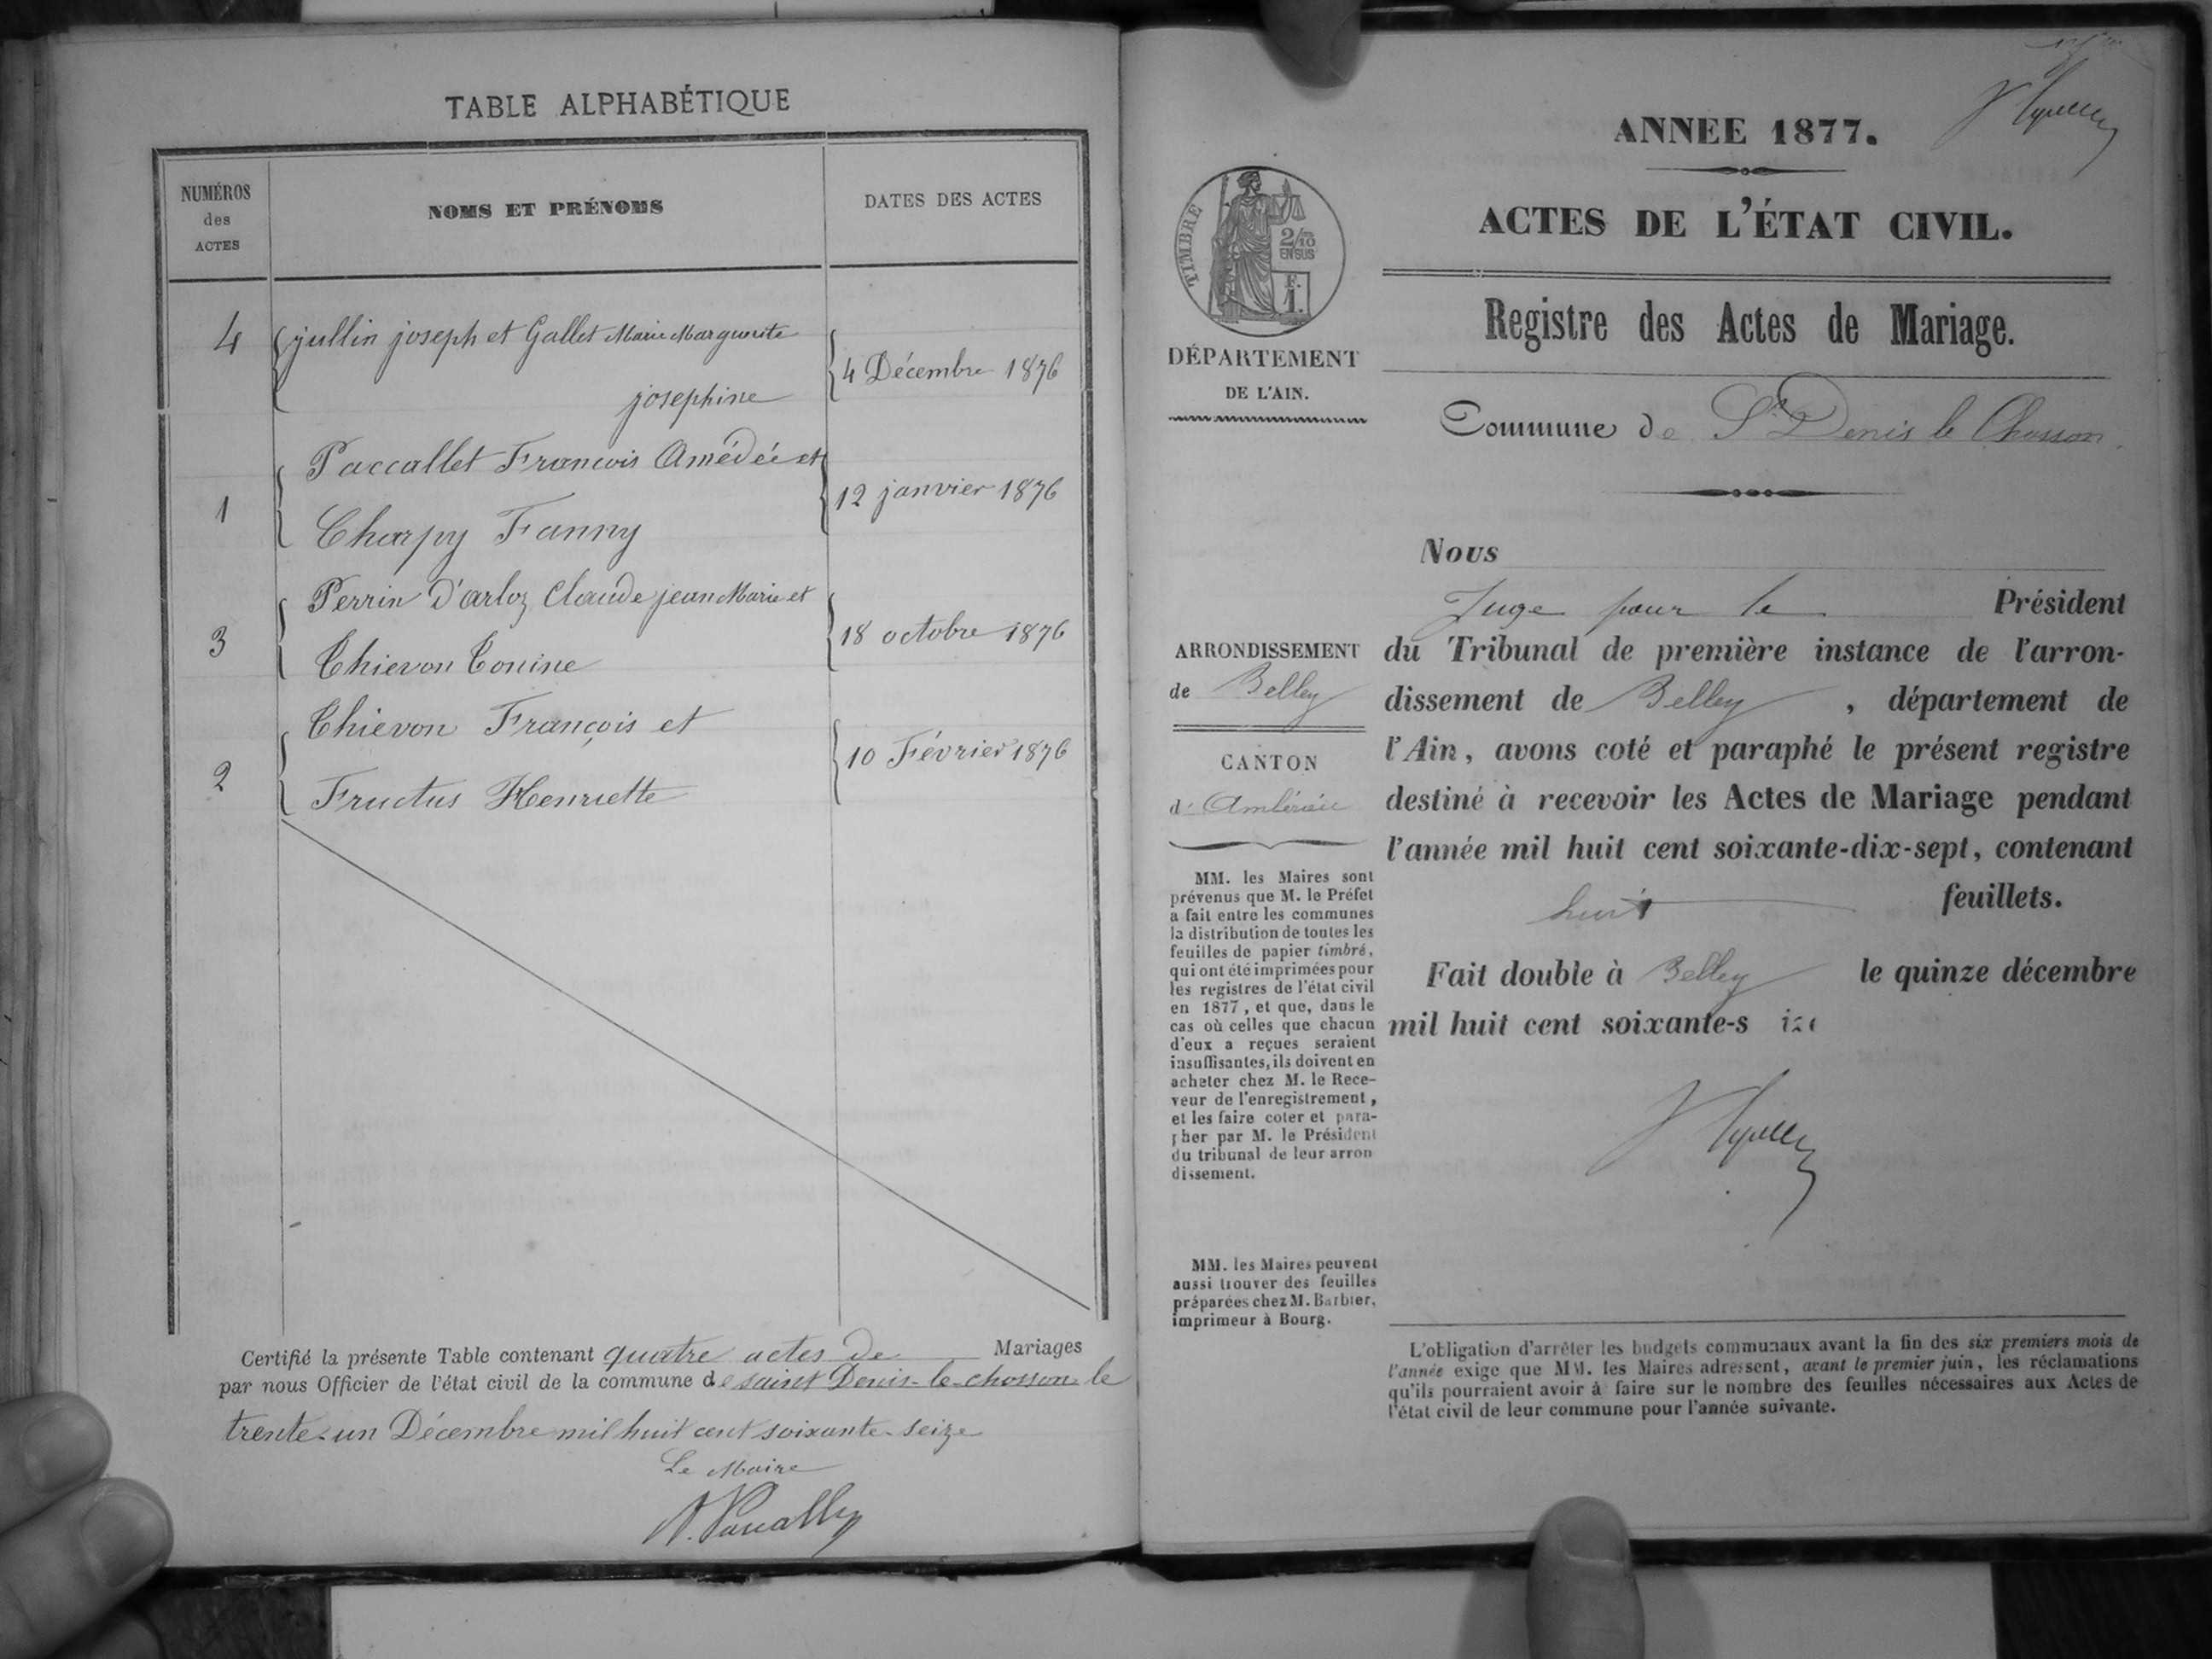 TABLE ALPHABÉTIQUE
NUMÉROS
des
ACTES
NOMS ET PRÉNOMS
DATES DES ACTES
4
jullin joseph et Gallet Marie Marguerite
josephine
4 Décembre 1876
1
Paccallet Francois Amédée et
Charpy Fanny
12 janvier 1876
3
Perrin D'arloz Claude jean Marie et
Thievon Tonine
18 octobre 1876
2
Thievon François et
Fructus Henriette
10 Février 1876
Certifié la présente Table contenant quatre actes de Mariages
par nous Officier de l'état civil de la commune de saint Denis-le-chosson le
trente-un Décembre mil huit cent soixante-seize
Le Maire
ANNEE 1877.
ACTES DE L'ÉTAT CIVIL.
Registre des Actes de Mariage.
Commune de St Denis le Chosson
TIMBRE
2/10
EN SUS
F.
1.
DÉPARTEMENT
DE L'AIN.
ARRONDISSEMENT
de Belley
CANTON
d'Ambérieu
MM. les Maires sont
prévenus que M. le Préfet
a fait entre les communes
la distribution de toutes les
feuilles de papier timbré,
qui ont été imprimées pour
les registres de l'état civil
en 1877, et que, dans le
cas où celles que chacun
d'eux a reçues seraient
insuffisantes, ils doivent en
acheter chez M. le Rece-
veur de l'enregistrement,
et les faire coter et para-
pher par M. le Président
du tribunal de leur arron
dissement.
MM. les Maires peuvent
aussi trouver des feuilles
préparées chez M. Barbier,
imprimeur à Bourg.
Nous
Juge pour le Président
du Tribunal de première instance de l'arron-
dissement de Belley, département de
l'Ain, avons coté et paraphé le présent registre
destiné à recevoir les Actes de Mariage pendant
l'année mil huit cent soixante-dix-sept, contenant
huit feuillets.
Fait double à Belley le quinze décembre
mil huit cent soixante-s ize
L'obligation d'arrêter les budgets communaux avant la fin des six premiers mois de
l'année exige que MM. les Maires adressent, avant le premier juin, les réclamations
qu'ils pourraient avoir à faire sur le nombre des feuilles nécessaires aux Actes de
l'état civil de leur commune pour l'année suivante.